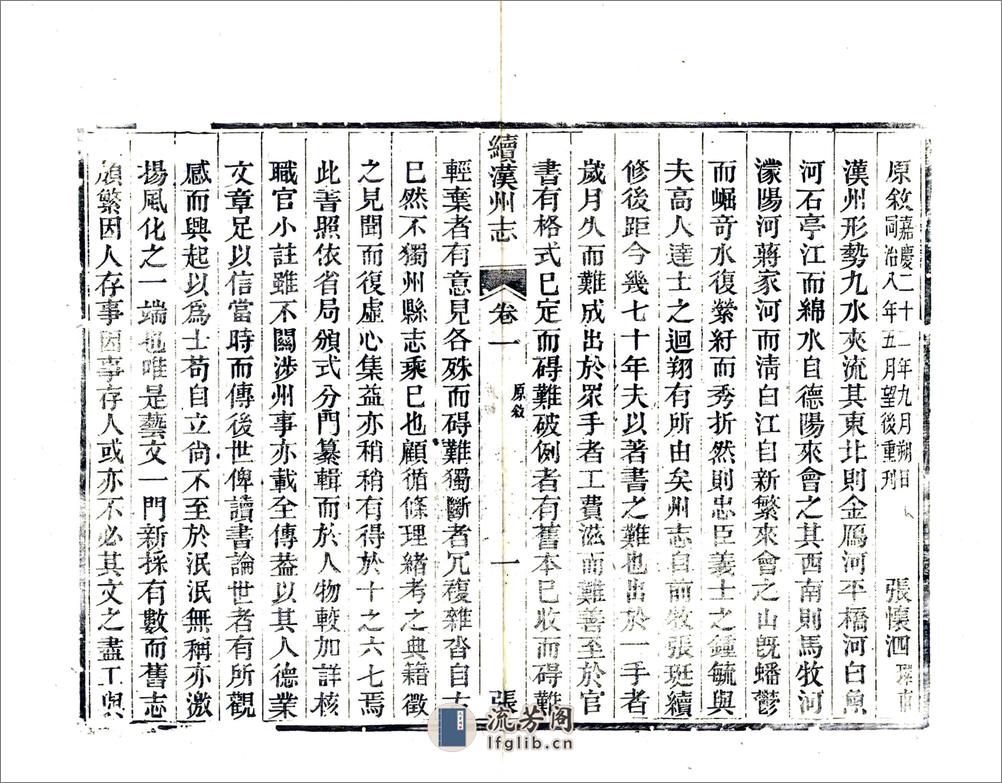 原敘嘉慶二十二年九月朔日
同治八年五月望後重刊
張懷泗
漢州形勢九水夾流其東北則金鴈河平橋河白魚
河石亭江而綿水自德陽來會之其西南則馬牧河
濛陽河蔣家河而淸白江自新繁來會之山旣蟠鬱
而崛奇水復縈紆而秀折然則忠臣義士之鍾毓與
夫高人達士之迴翔有所由矣州志自前牧張珽續
修後距今幾七十年夫以著書之難也出於一手者
歲月久而難成出於眾手者工費滋而難善至於官
書有格式已定而碍難破例者有舊本已收而碍難
續漢州志
卷一
原敘
一
張
輕棄者有意見各殊而碍難獨斷者冗複雜沓自古
已然不獨州縣志乘已也顧循條理緒考之典籍徵
之見聞而復虛心集益亦稍稍有得於十之六七焉
此書照依省局頒式分門纂輯而於人物較加詳核
職官小註雖不關涉州事亦載全傳葢以其人德業
文章足以信當時而傳後世俾讀書論世者有所觀
感而興起以爲士苟自立尙不至於泯泯無稱亦激
揚風化之一端也唯是藝文一門新採有數而舊志
頗繁因人存事因事存人或亦不必其文之盡工與
流芳阁
lfglib.cn